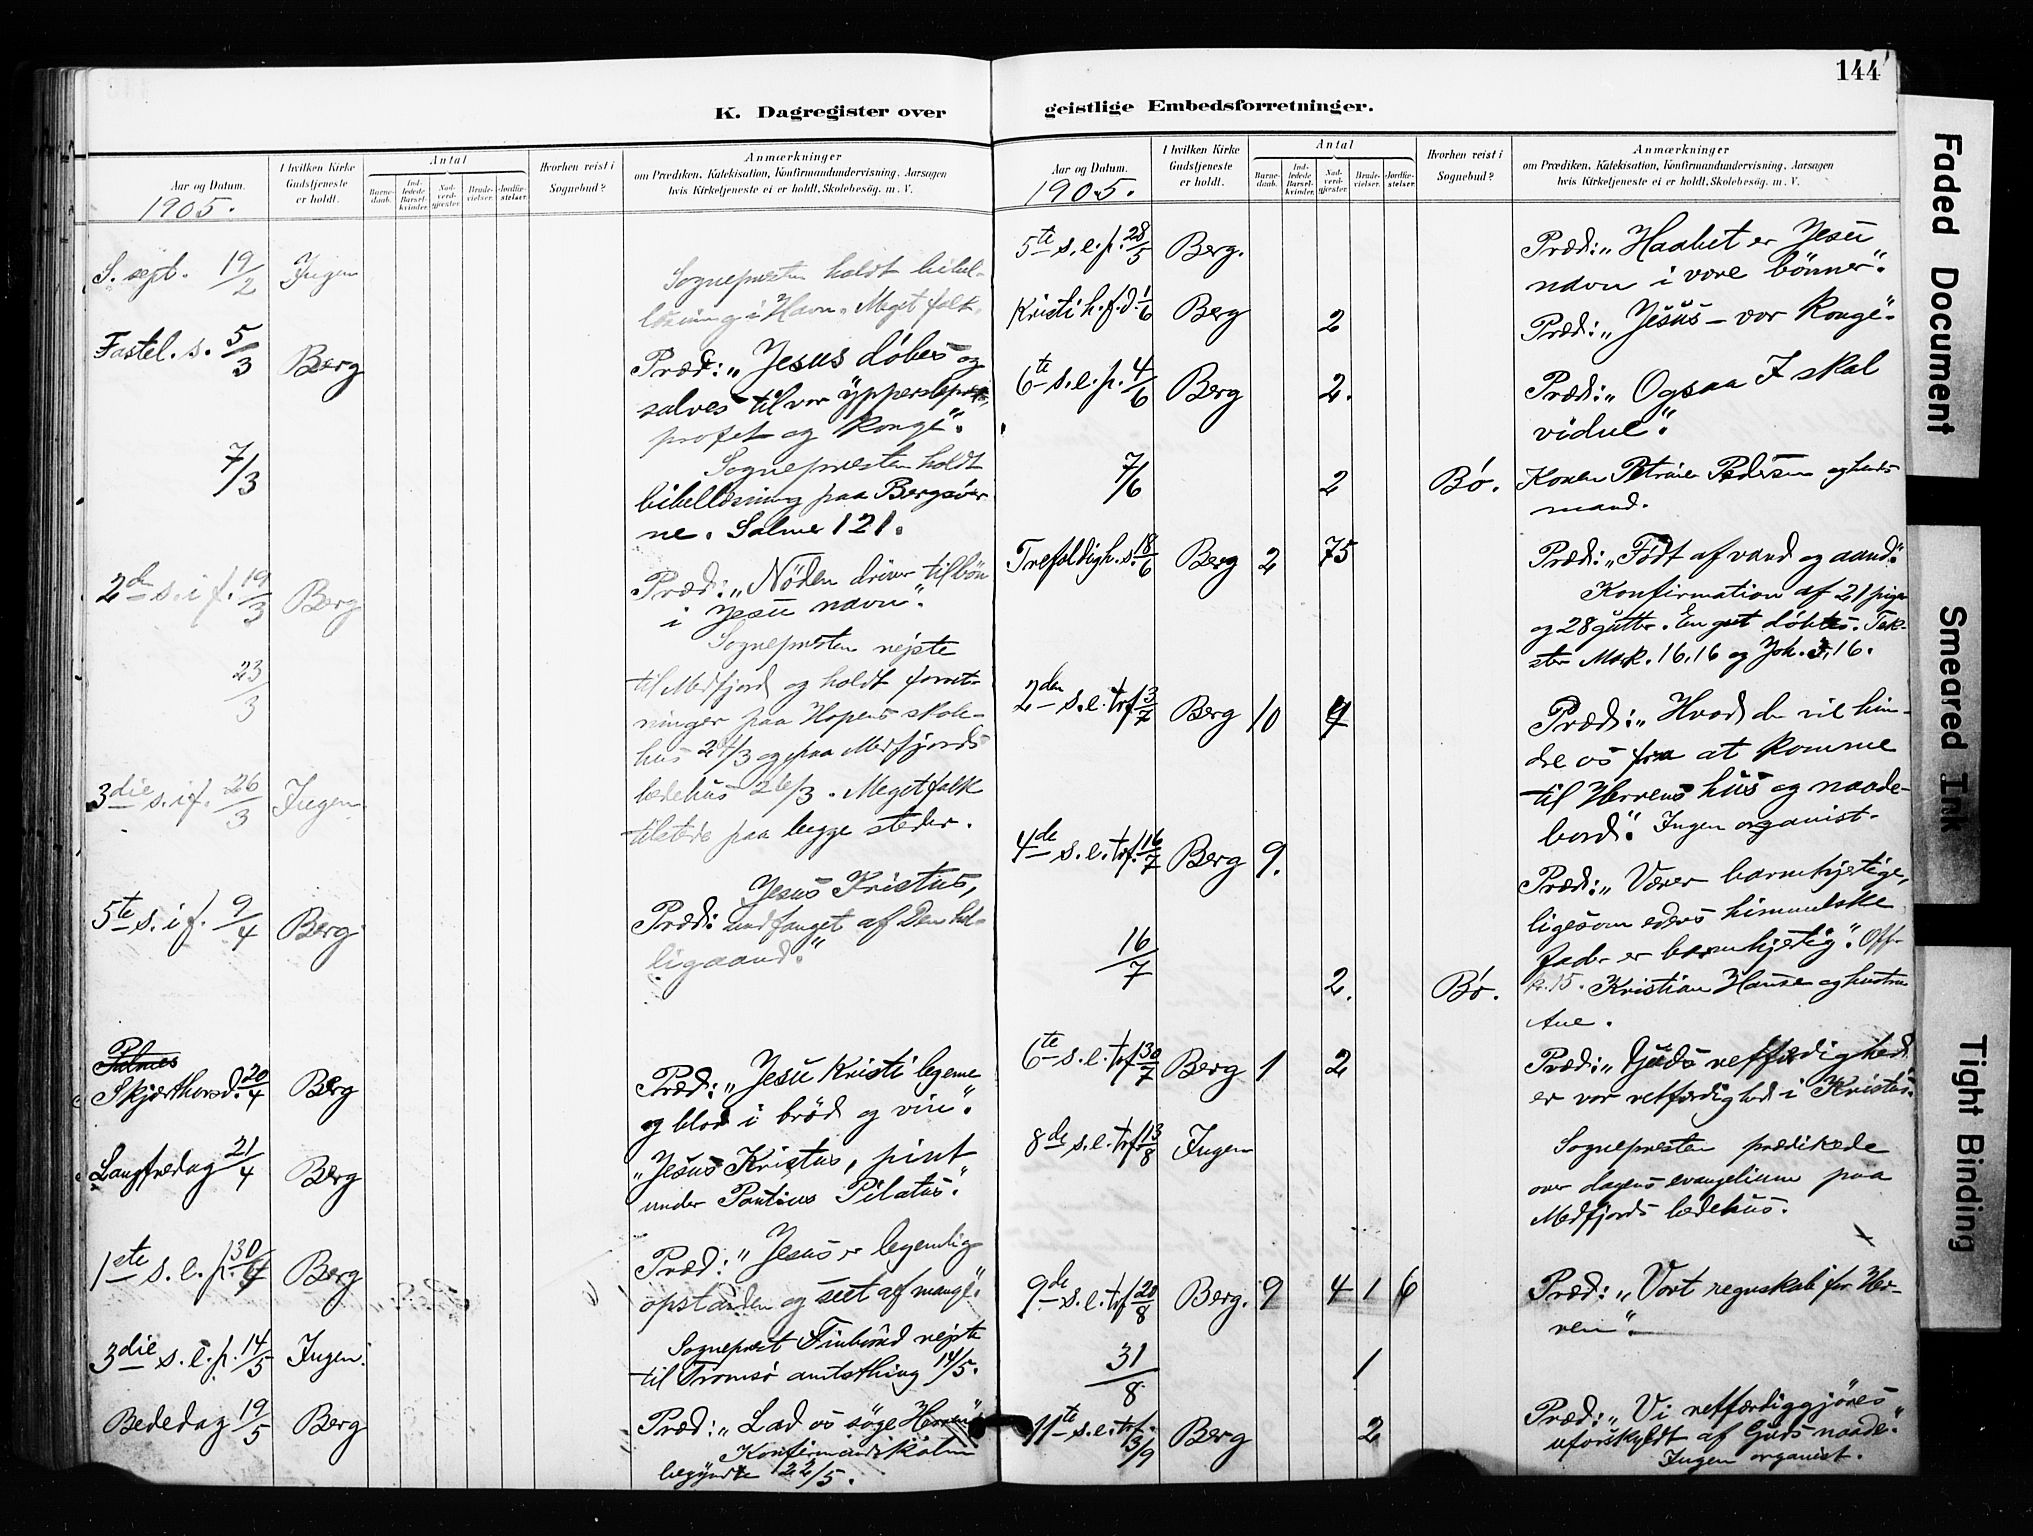 144
K. Dagregister over
Aar og Datum.
1905.
I hvilken Kirke
Gudstjeneste
er holdt.
Antal
Barne-
daab.
Ind-
ledede
Barsel-
kvinder.
Nad-
verd-
gjester.
Brude-
vielser.
Jordfæ-
stelser.
Hvorhen reist i
Sognebud?
Anmærkninger
om Prædiken, Katekisation, Konfirmandundervisning, Aarsagen
hvis Kirketjeneste ei er holdt, Skolebesøg, m. V.
S. sept. 19/2 Ingen Sognepresten holdt bibel-
læsning i Havn. Meget folk.
Fastel. s. 5/3 Berg Præd: „Jesus döbes og
salves til vor ypperstepræst,
profet og konge“.
7/3 Sognepresten holdt
bibellæsning paa Bergsöer-
ne. Salme 121.
2den s. i f. 19/3 Berg Præd: „Nöden driver til bön
i Jesu navn“.
23/3 Sognepresten rejste
til Medfjord og holdt forret-
ninger paa Hopens skole-
hus 24/3 og paa Medfjords
bedehus 26/3. Meget folk
tilstede paa begge steder.
3die s. i f. 26/3 Ingen
5te s. i f. 9/4 Berg Præd: Jesus Kristus,
undfanget af Den hel-
ligaand.“
Palmes
Skjærthorsd. 20/4 Berg Præd: „Jesu Kristi legeme
og blod i bröd og vin“.
Langfredag 21/4 Berg „Jesus Kristus, pint
under Pontius Pilatus“.
1ste s. e. p. 30/4 Berg Præd: „Jesus er legemlig
opstanden og seet af mange“.
3die s. e. p. 14/5 Ingen. Sogneprest rejste
til Tromsø amtsthing 14/5.
Bededag 19/5 Berg Præd: „Lad os söge Herren“
Konfirmandskolen
begyndte 22/5.
geistlige Embedsforretninger.
Aar og Datum.
1905.
I hvilken Kirke
Gudstjeneste
er holdt.
Antal
Barne-
daab.
Ind-
ledede
Barsel-
kvinder.
Nad-
verd-
gjester.
Brude-
vielser.
Jordfæ-
stelser.
Hvorhen reist i
Sognebud?
Anmærkninger
om Prædiken, Katekisation, Konfirmandundervisning, Aarsagen
hvis Kirketjeneste ei er holdt, Skolebesøg, m. V.
5te s. e. p. 28/5 Berg. Præd: „Haabet er Jesu
navn i vore bönner“.
Kristi h. f. d. 1/6 Berg 2 Præd: „Jesus – vor konge“.
6te s. e. p. 4/6 Berg 2. Præd: „Ogsaa I skal
vidne“.
7/6 2 Bø. Konen Petrine Pedersen og hendes
mand.
Trefoldigh. s. 18/6 Berg 2 75 Præd: „Født af vand og aand“.
Konfirmation af 21 piger
og 28 gutter. En gut döbtes. Tek-
ster Mark. 16.16 og Joh. 3,16.
2den s. e. trf 3/7 Berg 10 4 Præd: „Hvad der vil hin-
dre os fra at komme
til Herrens hus og naade-
bord“. Ingen organist.
4de s. e. trf. 16/7 Berg 9. Præd: „Værer barmhjertige,
ligesom eders himmelske
fader er barmhjertig“. Off-
k. 15.
16/7 2. Bø. Kristian Hansen og hustru
Ane.
6te s. e. trf 30/7 Berg 1 2 Præd: „Guds retfærdighed
er vor retfærdighed i Kristus“.
8de s. e. trf 13/8 Ingen Sognepresten prædikede
over dagens evangelium paa
Medfjords bedehus.
9de s. e. trf 20/8 Berg. 9 4 1 6 Præd: „Vort regnskab for Her-
ren“.
31/8 1
11te s. e. trf. 3/9 Berg 2 Præd: „Vi retfærdiggjöres
uforskyldt af Guds naade“.
Ingen organist.
Faded Document
Smeared Ink
Tight Binding